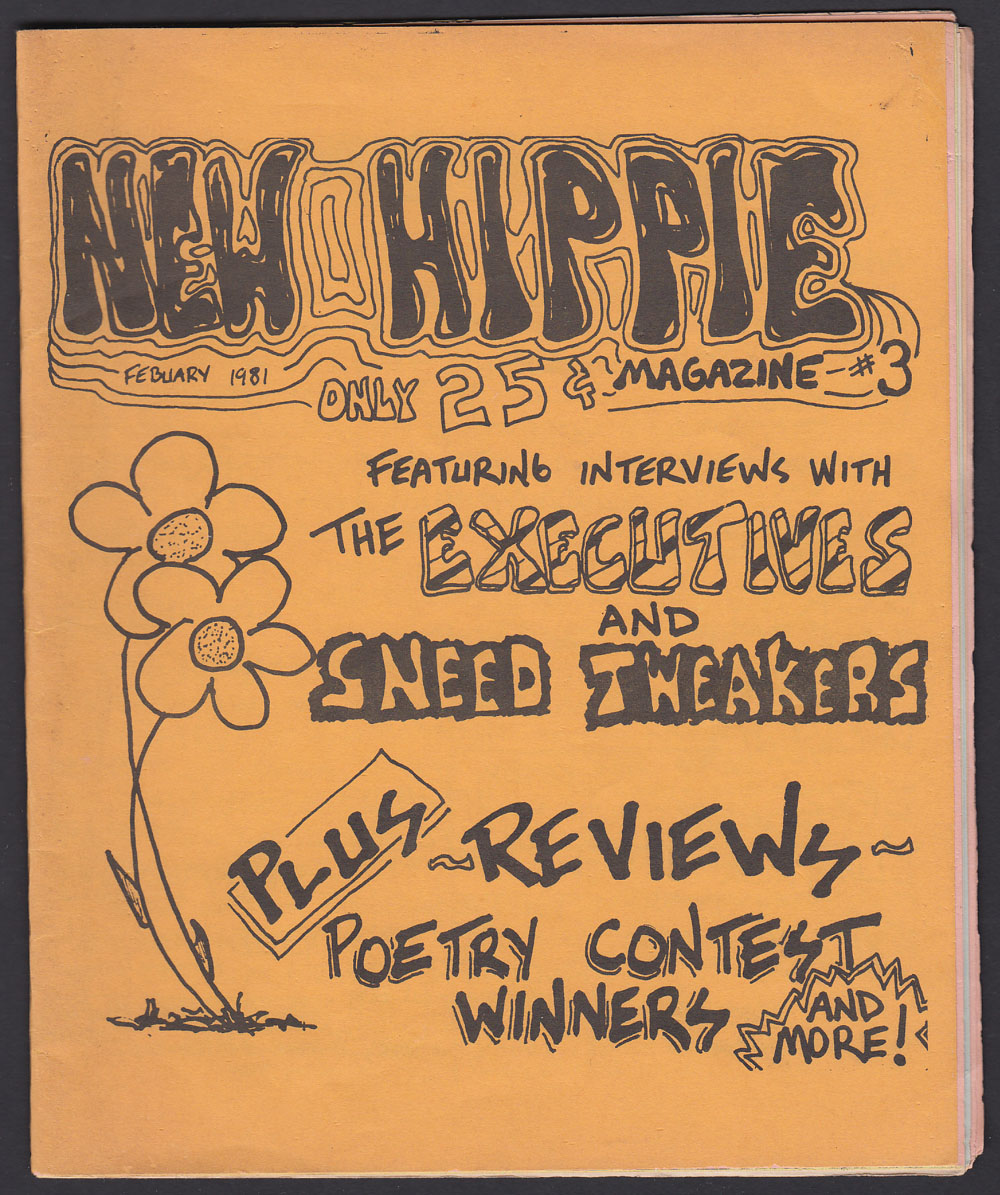 NEW HIPPIE
FEBUARY 1981
ONLY 25¢
MAGAZINE - #3
FEATURING INTERVIEWS WITH
THE EXECUTIVES
AND
SNEED TWEAKERS
PLUS
~REVIEWS~
POETRY CONTEST
WINNERS
AND
MORE!